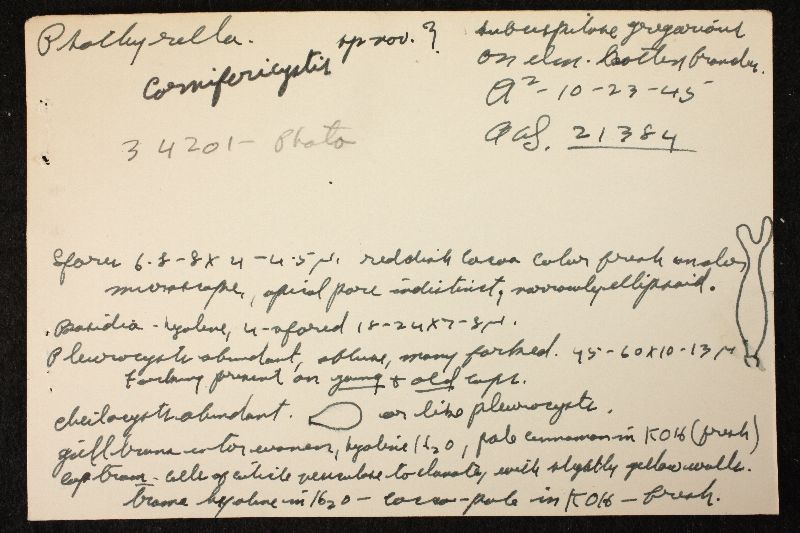 Psathyrella. sp nov. ?
cornifericystis
34201 - Photo
subcespitose gregarious
on elm. Rotten branches.
A² - 10-23-45
AHS. 21384
Spores 6.8-8 x 4-4.5 μ. reddish cocoa color fresh under
microscope, apical pore indistinct, narrowly ellipsoid.
Basidia - hyaline, 4-spored 18-24x7-8μ.
Pleurocysts abundant, obtuse, many forked. 45-60x10-13 μ
Forking present on young & old caps.
cheilocysts abundant. or like pleurocysts.
gill trama interwoven, hyaline H2O, pale cinnamon in KOH (fresh)
cap tram - cells of cuticle vesiculose to clavate, with slightly yellow walls.
trama hyaline in H2O - cocoa-pale in KOH - fresh.